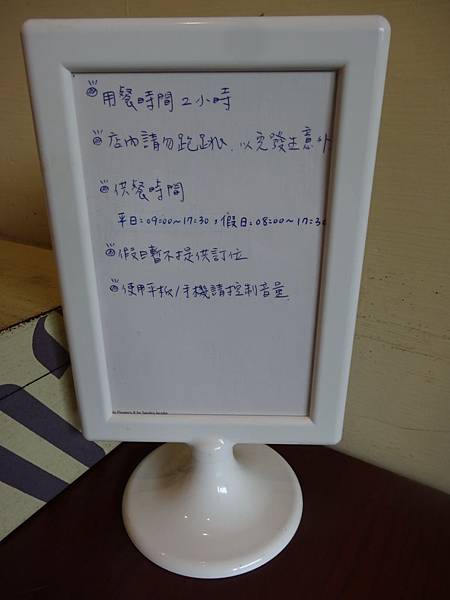 用餐時間2小時
店內請勿跑跳,以免發生意外
供餐時間
平日:09:00~17:30,假日:08:00~17:30
假日暫不提供訂位
使用平板/手機請控制音量